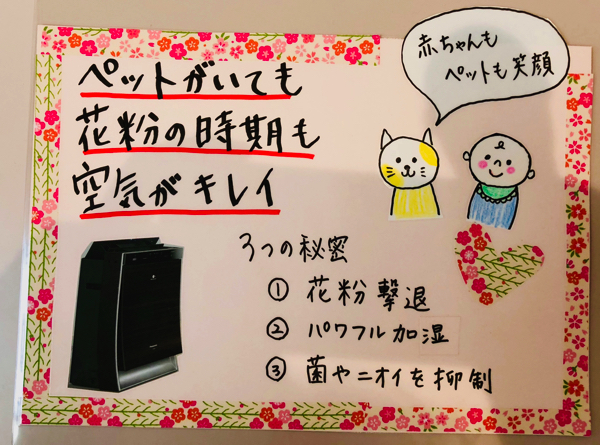 ペットがいても
花粉の時期も
空気がキレイ
赤ちゃんも
ペットも笑顔
3つの秘密
① 花粉撃退
② パワフル加湿
③ 菌やニオイを抑制